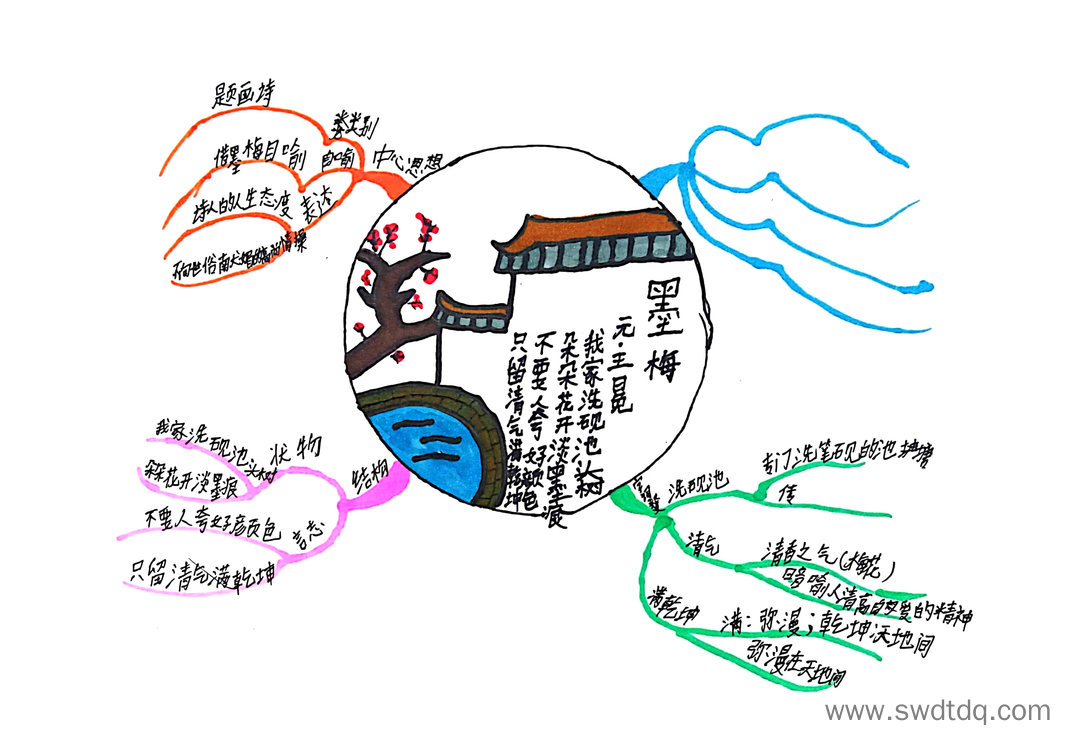 墨梅
元·王冕
我家洗砚池头树
朵朵花开淡墨痕
不要人夸好颜色
只留清气满乾坤
中心思想
类别
题画诗
自喻
借墨梅自喻
表达
诗人的人生态度
不向世俗
情操
结构
状物
我家洗砚池头树
朵花开淡墨痕
言志
不要人夸好颜色
只留清气满乾坤
洗砚池
专门洗笔砚的池塘
传
清气
清香之气(梅花)
暗喻人清高自爱的精神
满乾坤
满：弥漫；乾坤天地间
弥漫在天地间
www.swdtdq.com